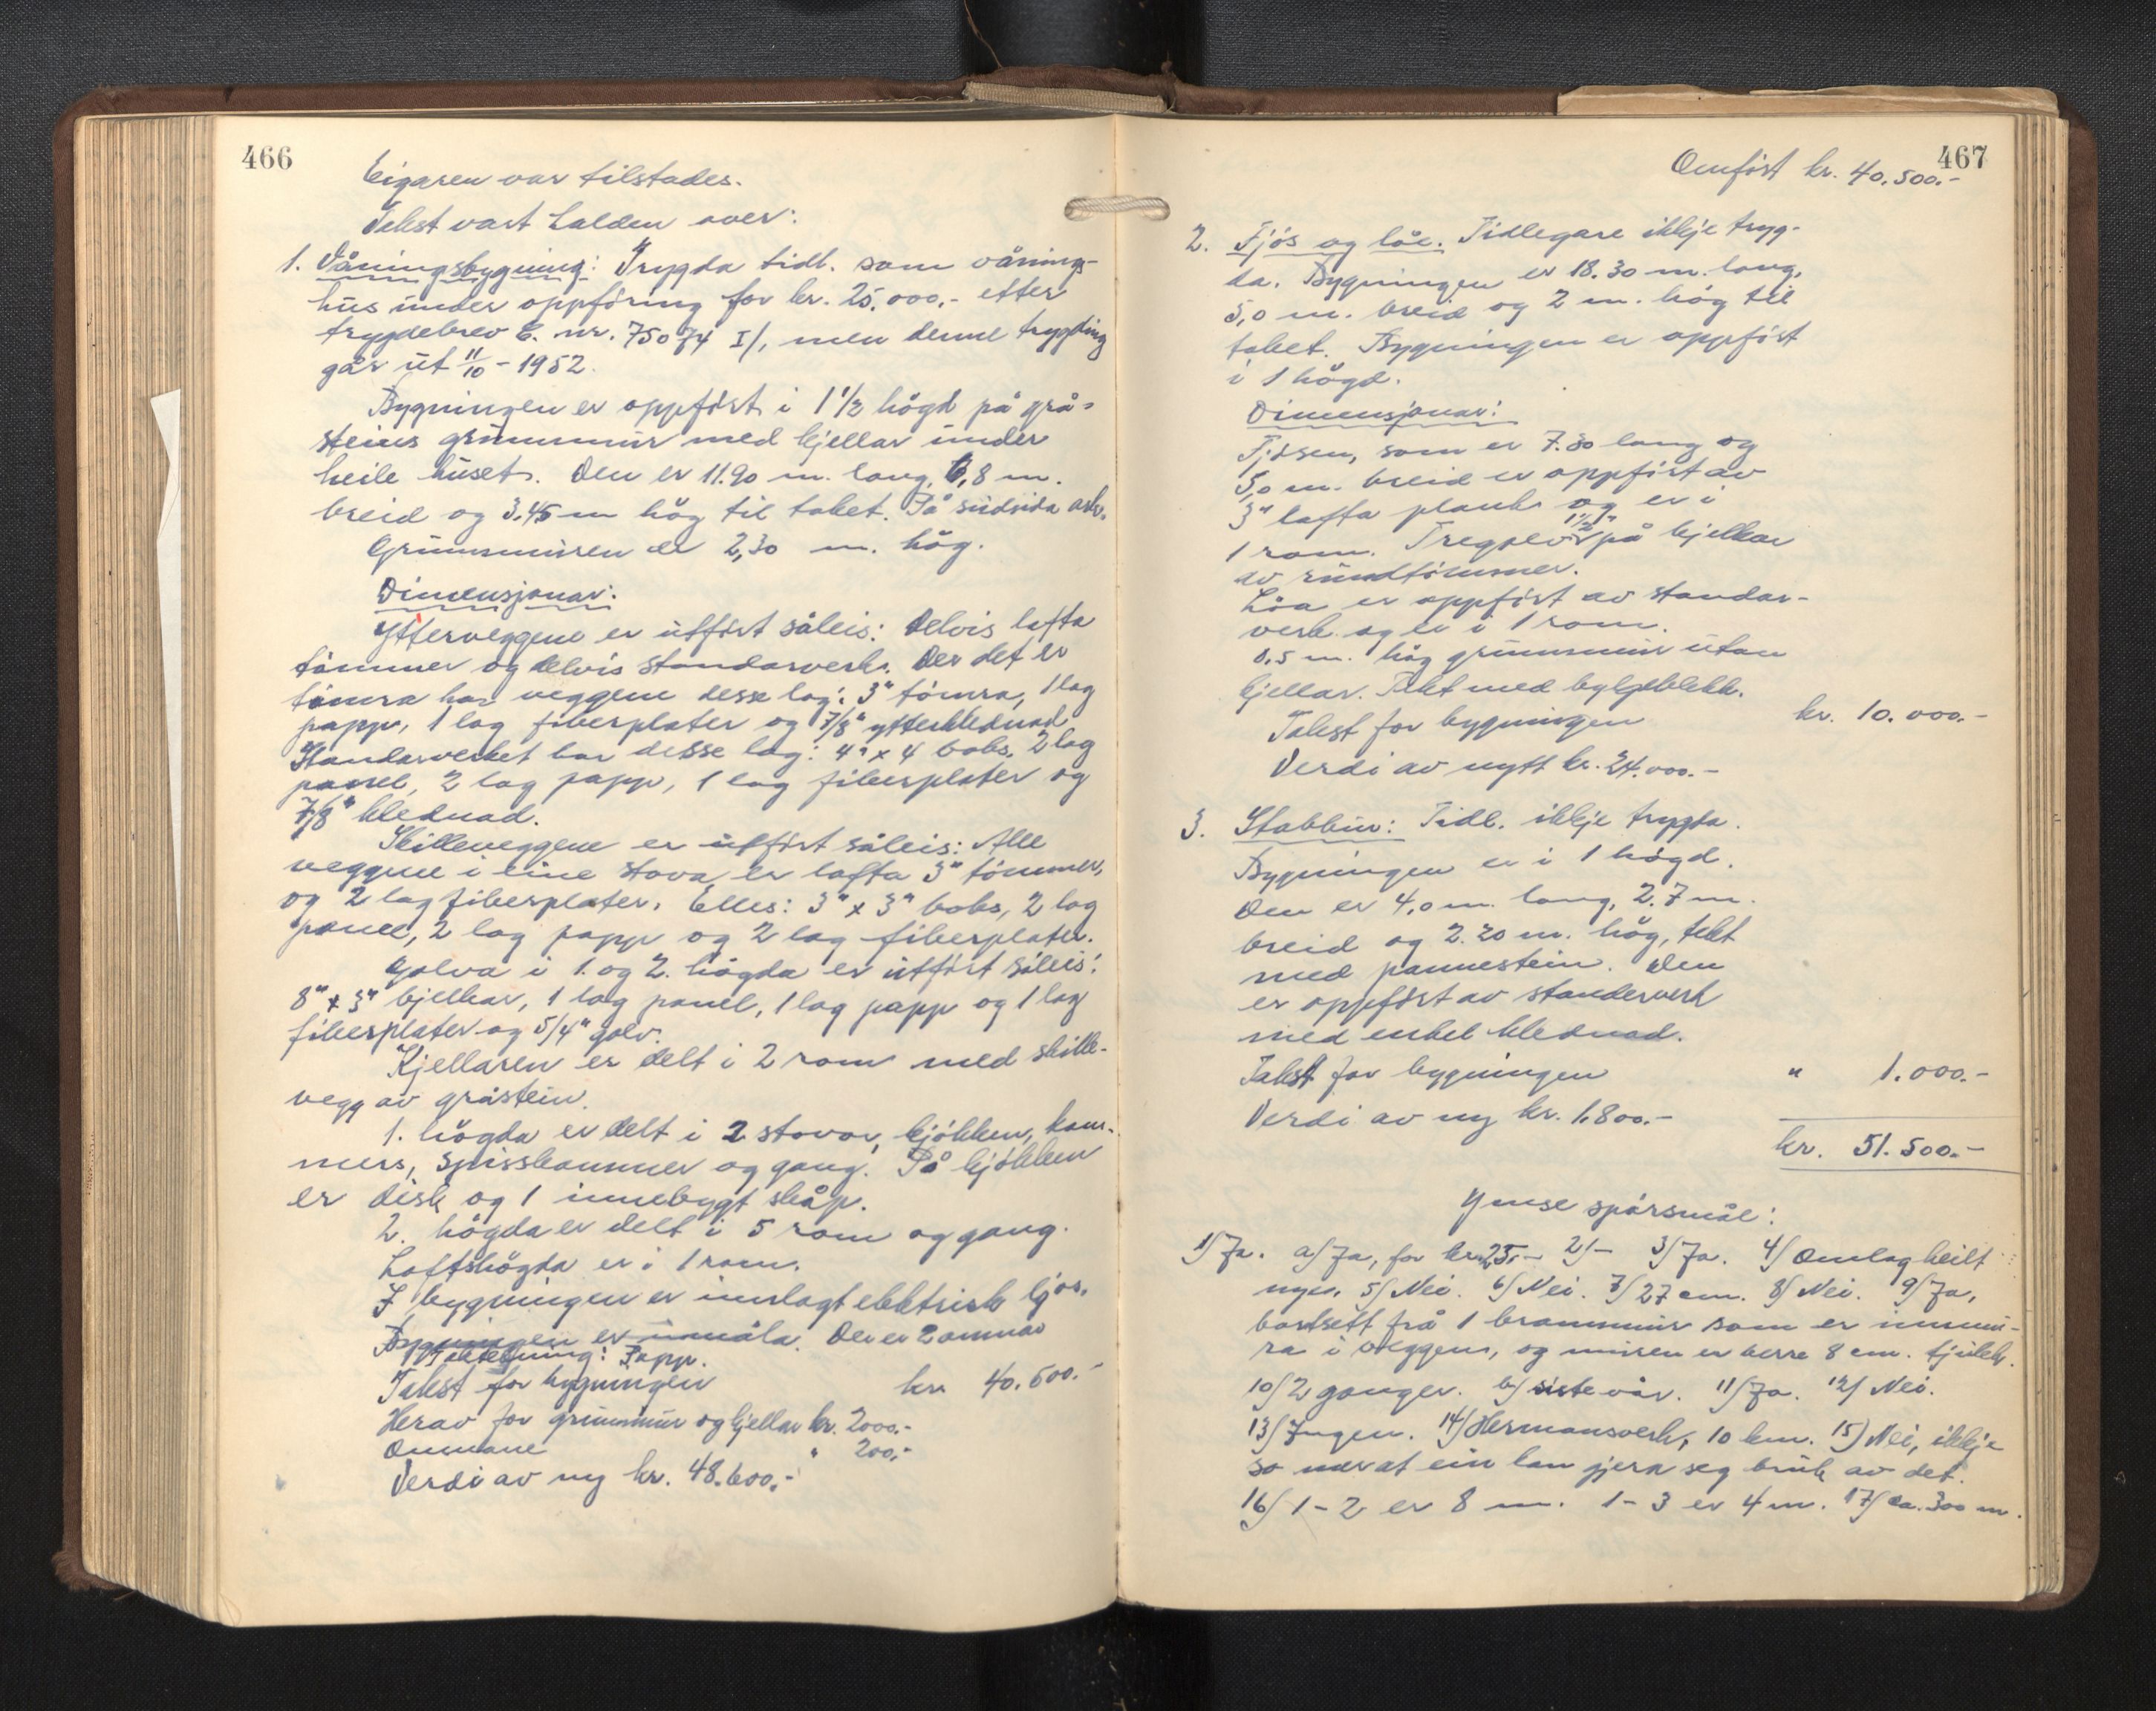 466
Eigaren var tilstades.
Takst vart halden over:
1. Våningsbygning: Trygda tidl. som vånings-
hus under oppföring for kr. 25.000,- etter
trygdebrev E. nr. 75074 I/, men denne trygding
går ut 11/10 - 1952.
Bygningen er oppfört i 1 1/2 högd på grå-
steins grunnmur med kjellar under
heile huset. Den er 11.90 m. lang, 6,8 m.
breid og 3.45 m hög til taket. På sudsida ark.
Grunnmuren er 2,30 m. hög.
Dimensjonar:
Ytterveggene er utfört såleis: Delvis lafta
tömmer og delvis standarverk. Der det er
tömra har veggene desse lag: 3" tömra, 1 lag
papp, 1 lag fiberplater og 7/8" ytterklednad
Standarverket har desse lag: 4" x 4 boks, 2 lag
panel, 2 lag papp, 1 lag fiberplater og
7/8" klednad.
Skilleveggene er utfört såleis: Alle
veggene i eine stova er lafta 3" tömmer,
og 2 lag fiberplater. Elles: 3" x 3" boks, 2 lag
panel, 2 lag papp og 2 lag fiberplater.
Golva i 1. og 2. högda er utfört såleis:
8" x 3" bjelkar, 1 lag panel, 1 lag papp og 1 lag
fiberplater og 5/4" golv.
Kjellaren er delt i 2 rom med skille-
vegg av gråstein.
1. högda er delt i 2 stovor, kjökken, kam-
mers, spisskammer og gang. På kjökken
er disk og 1 innebygt skåp.
2. högda er delt i 5 rom og gang.
Loftshögda er i 1 rom.
I bygningen er innlagt elektrisk ljos.
Bygningen er umåla. Der er 2 omnar
Taktekning: Papp.
Takst for bygningen kr. 40.500.-
Herav for grunnmur og kjellar kr. 2000.-
Omnane " 200.-
Verdi av ny kr. 48.600.-
467
Omfört kr. 40.500.-
2. Fjös og löe. Tidlegare ikkje tryg-
da. Bygningen er 18.30 m. lang,
5,0 m. breid og 2 m. hög til
taket. Bygningen er oppfört
i 1 högd.
Dimensjonar:
Fjösen, som er 7.30 lang og
5,0 m. breid er oppfört av
3" lafta plank og er i
1 rom. Tregolv 1 1/2" på bjelkar
av rundtömmer.
Löa er oppfört av standar-
verk og er i 1 rom.
0,5 m. hög grunnmur utan
kjellar. Tekt med bylgjeblekk.
Takst for bygningen kr. 10.000.-
Verdi av nytt kr. 24.000.-
3. Stabbur: Tidl. ikkje trygda.
Bygningen er i 1 högd.
Den er 4,0 m. lang, 2,7 m.
breid og 2.20 m. hög, tekt
med pannestein. Den
er oppfört av standerverk
med enkel klednad.
Takst for bygningen " 1.000.-
Verdi av ny kr. 1.800.-
kr. 51.500.-
Ymse spörsmål:
1/ Ja. a/ Ja, for kr. 25.- 2/- 3/ Ja. 4/ Omlag heilt
nye. 5/ Nei. 6/ Nei. 7/ 27 cm. 8/ Nei. 9/ Ja,
bortsett frå 1 brannmur som er innmu-
ra i veggen, og muren er berre 8 cm. tjukk.
10/ 2 gonger. b/ siste vår. 11/ Ja. 12/ Nei.
13/ Ingen. 14/ Hermansverk, 10 km. 15/ Nei, ikkje
so nær at ein kan gjera seg bruk av det.
16/ 1-2 er 8 m. 1-3 er 4 m. 17/ ca. 300 m.